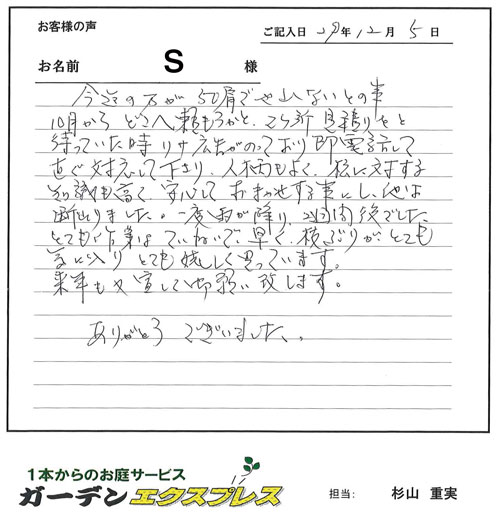 お客様の声
ご記入日 29年 12月 5日
お名前 S 様
今迄の方が50肩で出来ないとの事
10月から どこへ頼もうかと、2ヶ所見積りをと
待っていた時 リサ広告がのっており即電話して
直ぐ対応して下さり、人柄もよく、松に対する
知識も高く、安心して おまかせする事にし、他は
断わりました。一度雨が降り 2週間後でした
とても作業は ていねいで 早く、枝ぶりが、とても
気に入り とても嬉しく思っています。
来年も又宜しく御願い致します。
ありがとう ございました。
1本からのお庭サービス
ガーデンエクスプレス
担当: 杉山 重実